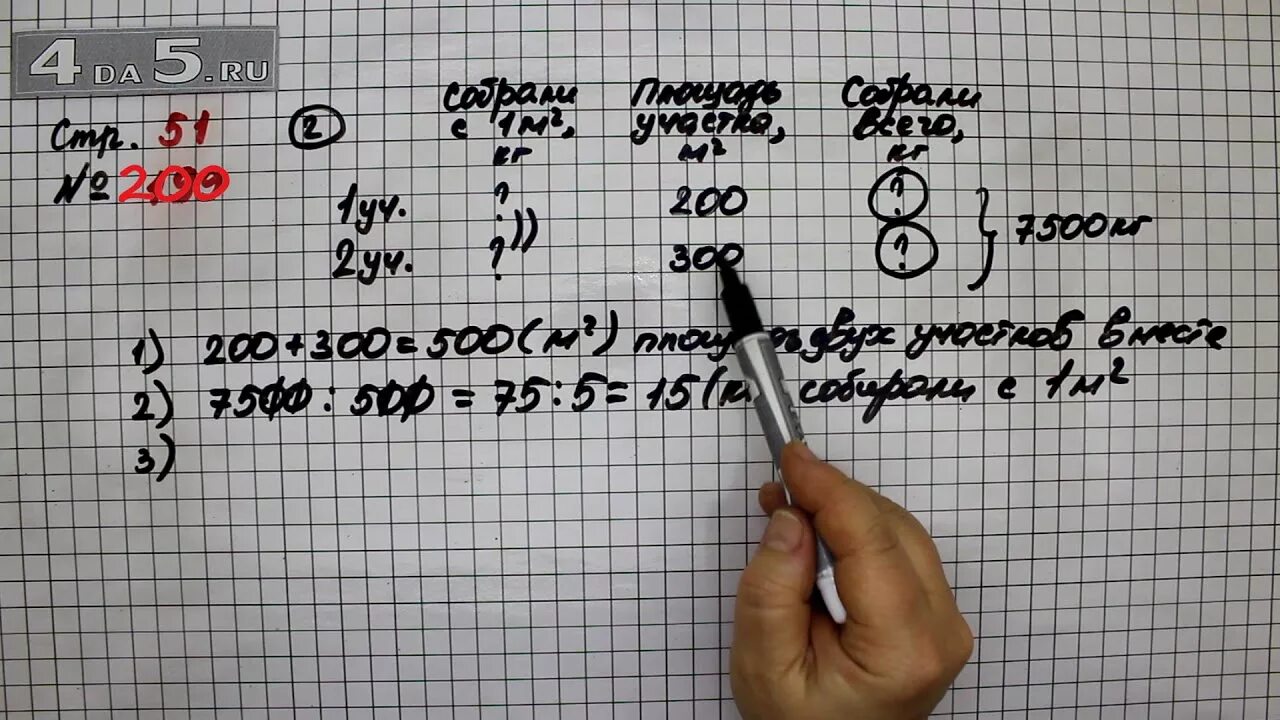 4DA5.RU
Стр. 51
№ 200
2
собрали с 1м², кг
Площадь участка, м²
Собрали всего, кг
1уч. ? 200 ?
2уч. ? 300 ?
7500кг
1) 200+300=500(м²) двух участков вместе
2) 7500:500=75:5=15( собирали с 1м²
3)